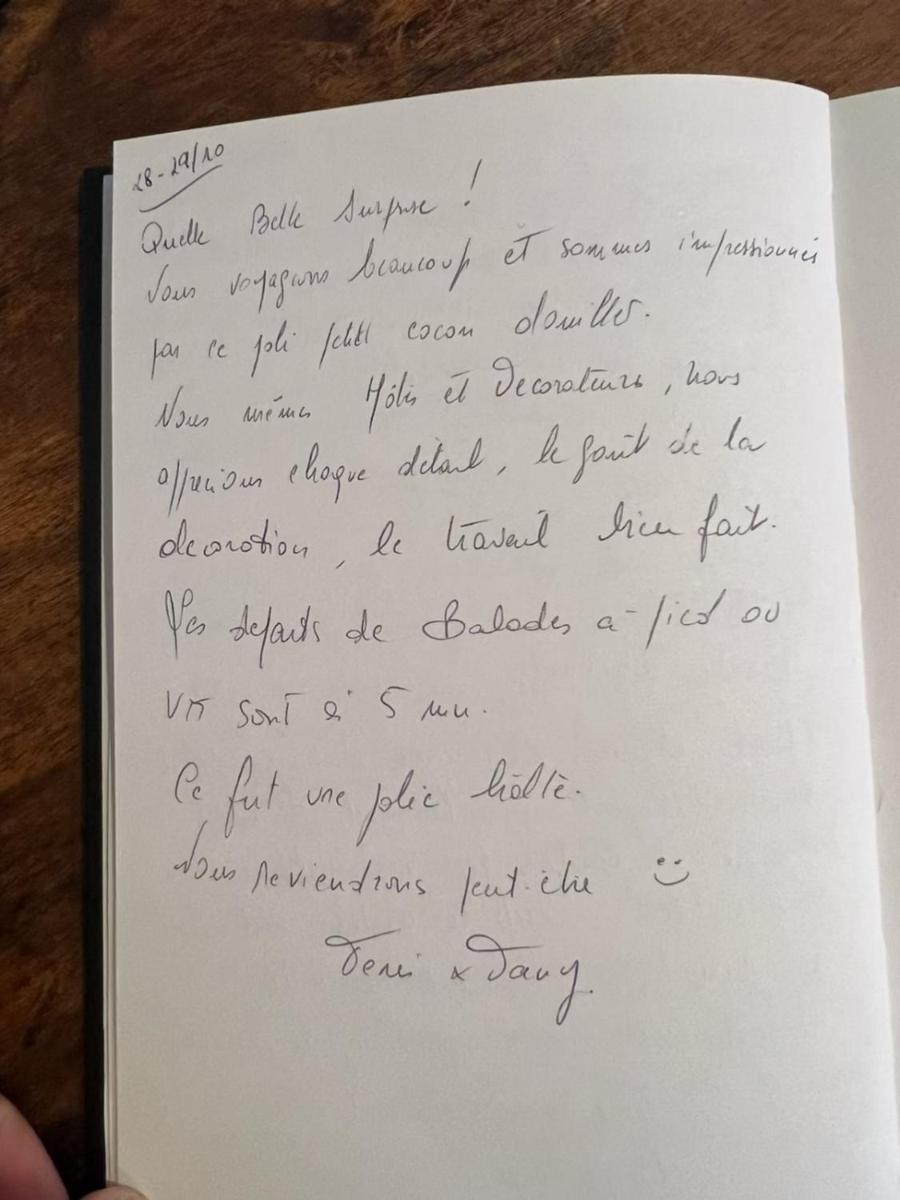 28-29/10
Quelle Belle Surprise !
Nous voyageons beaucoup et sommes impressionnés
par ce joli petit cocon douillet.
Nous mêmes Hôtes et Decorateurs, nous
apprécions chaque détail, le goût de la
decoration, le travail bien fait.
Les departs de Balades à pied ou
VTT sont à 5 mn.
Ce fut une jolie hâlte.
Nous reviendrons peut-être
Denis & Dany